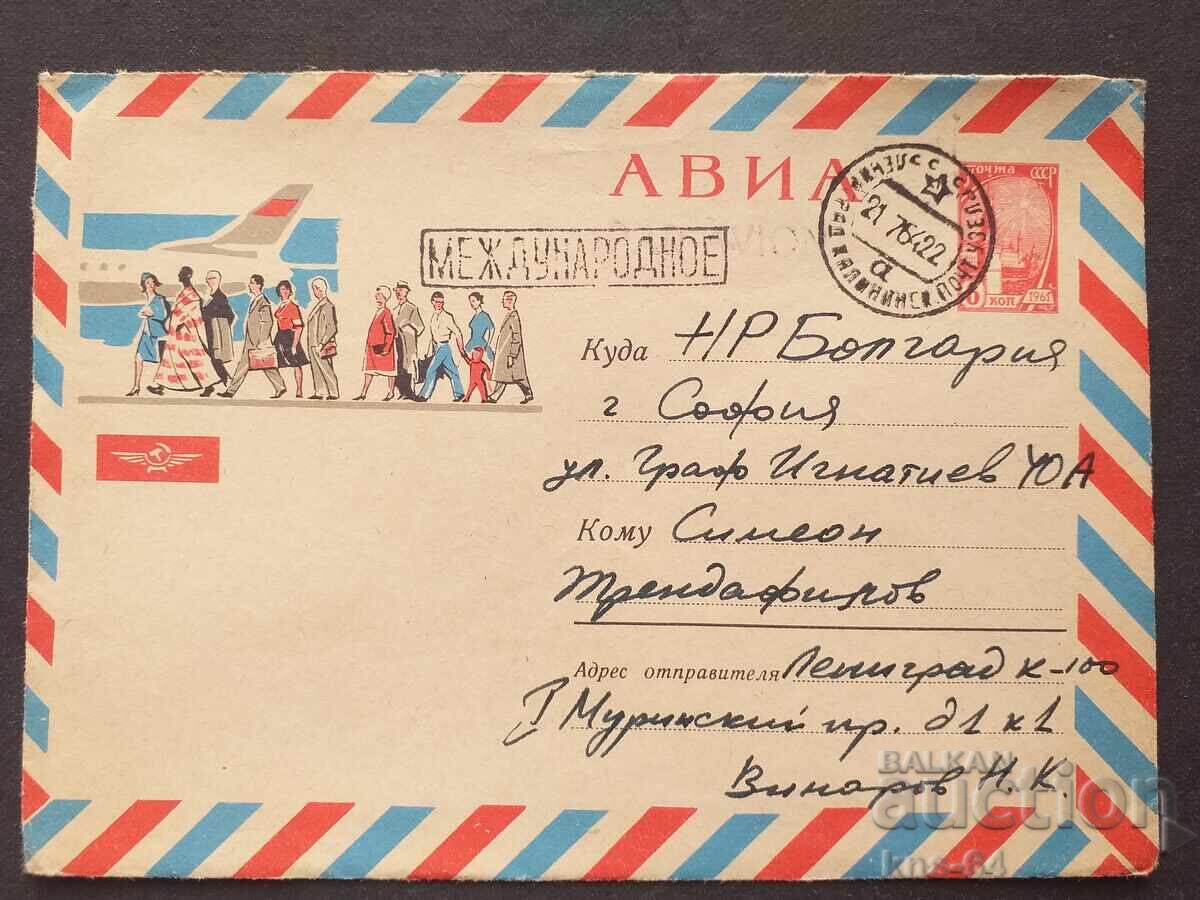 АВИА
ПОЧТА СССР
6 КОП 1961
МЕЖДУНАРОДНОЕ
21 7 64 22
а
Куда НР Болгария
г София
ул. Граф Игнатиев 40А
Кому Симеон
Трендафилов
Адрес отправителя Лениград к-100
I Муринский пр. д1 к1
Винаров Н. К.
BALKAN
auction
kns-64